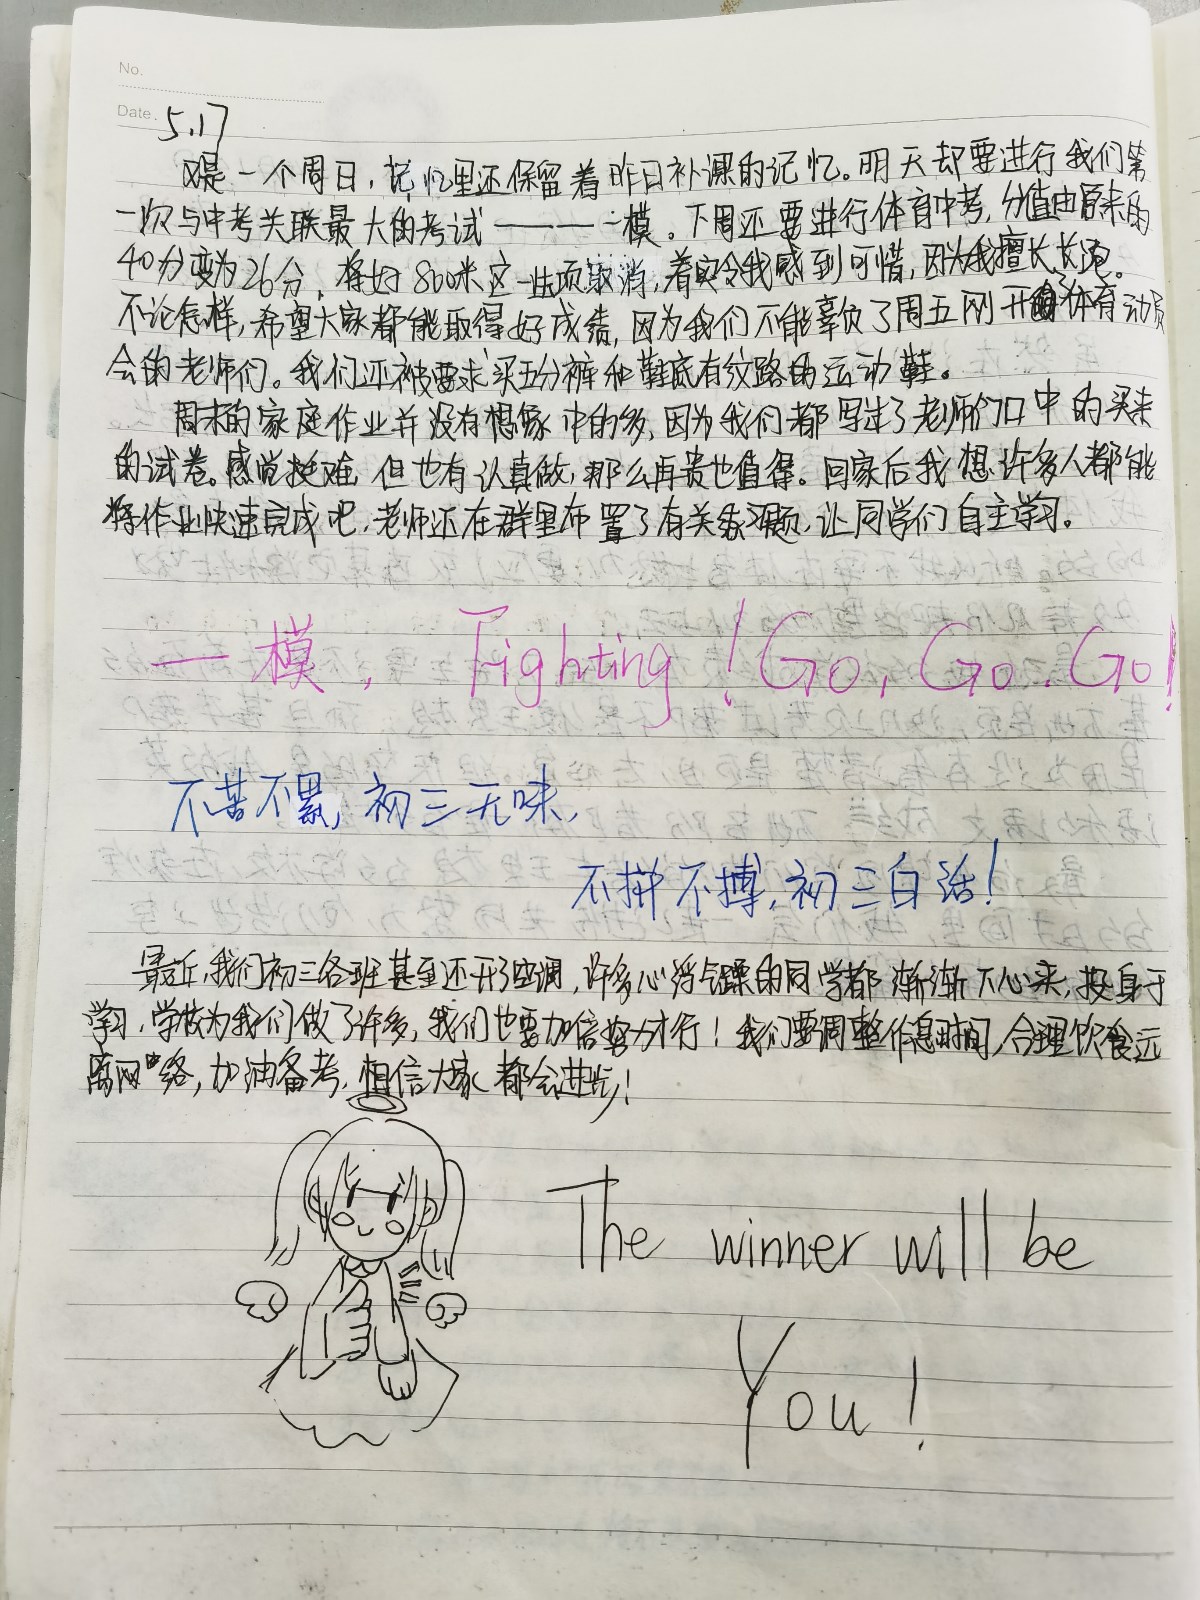 No.
Date. 5.17
又是一个周日，记忆里还保留着昨日补课的记忆。明天却要进行我们第
一次与中考关联最大的考试———一模。下周还要进行体育中考，分值由原来的
40分变为26分，将好800米这一选项取消，着实令我感到可惜，因为我擅长长跑。
不论怎样，希望大家都能取得好成绩，因为我们不能辜负了周五刚开了体育动员
会的老师们。我们还被要求买五分裤和鞋底有纹路的运动鞋。
周末的家庭作业并没有想象中的多，因为我们都写过了老师们口中的买来
的试卷。感觉挺难，但也有认真做，那么再贵也值得。回家后我想许多人都能
将作业快速完成吧，老师还在群里布置了有关练习题，让同学们自主学习。
一模，Fighting！Go，Go．Go！
不苦不累，初三无味，
不拼不搏，初三白活！
最近，我们初三各班甚至还开了空调，许多心浮气躁的同学都渐渐下心来，投身于
学习，学校为我们做了许多，我们也要加倍努力才行！我们要调整作息时间，合理饮食远
离网络，加油备考，相信大家都会进步！
The winner will be
You！